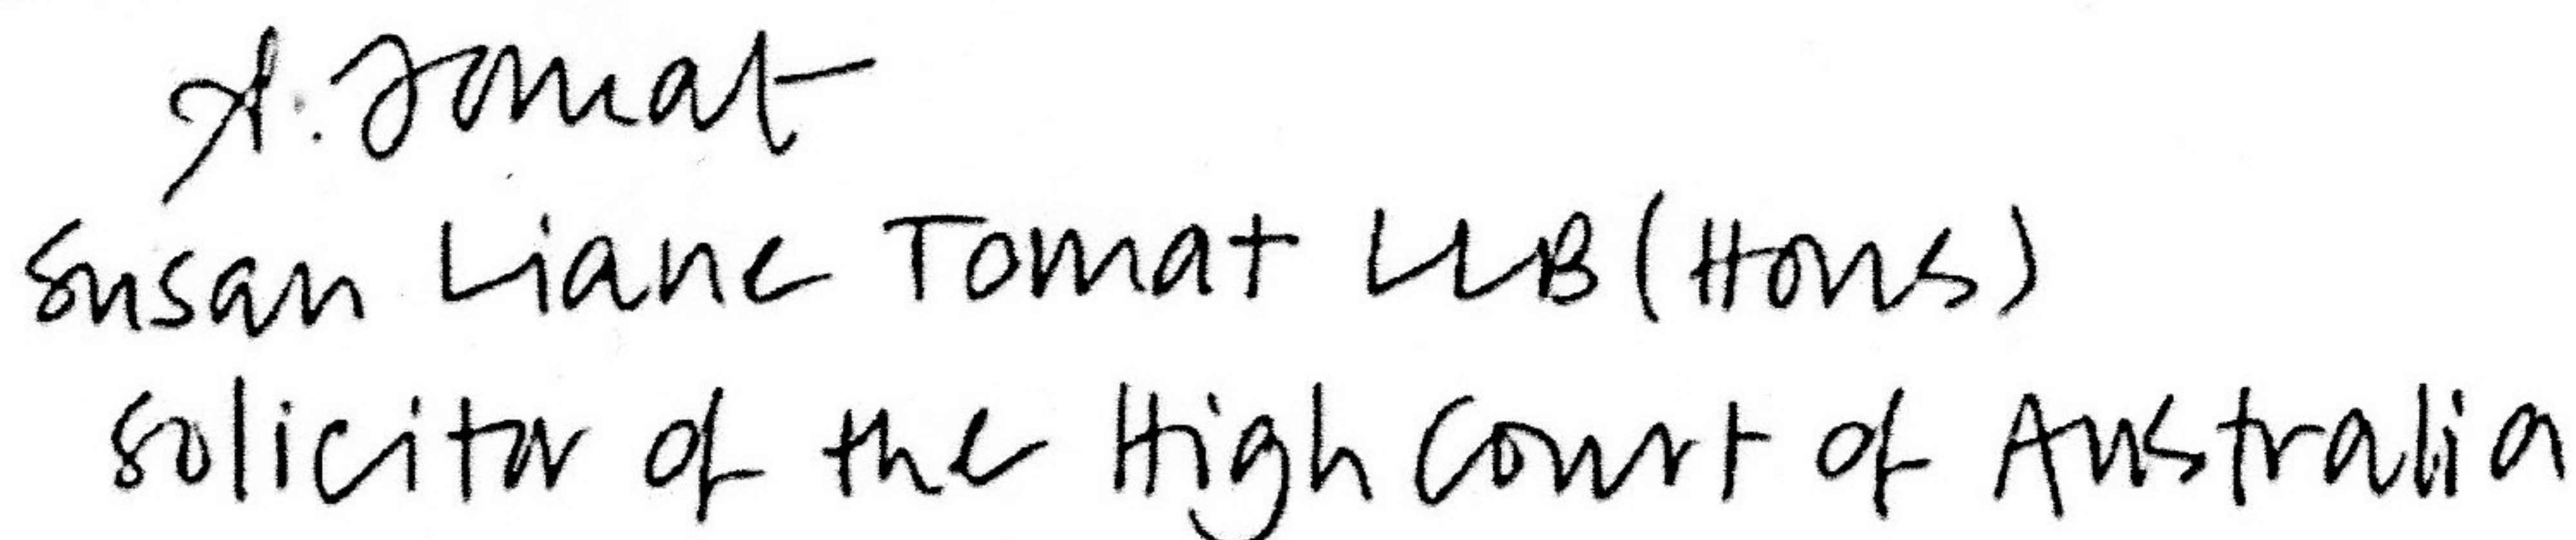 S. Tomat
Susan Liane Tomat LLB (Hons)
Solicitor of the High Court of Australia